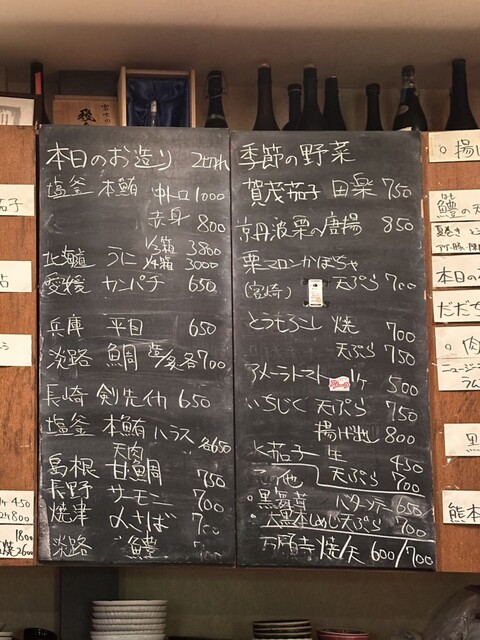 本日のお造り 2切れ
塩釜 本鮪 中トロ 1000
赤身 800
北海道 うに 1/3箱 3800
1/4箱 3000
愛媛 カンパチ 650
兵庫 平目 650
淡路 鯛 造/炙 各700
長崎 剣先イカ 650
塩釜 本鮪 ハラス 各650
天肉
島根 甘鯛 750
長野 サーモン 700
焼津 〆さば 700
淡路 鱧
季節の野菜
賀茂茄子 田楽 750
京丹波栗の唐揚 850
栗マロンかぼちゃ
(宮崎) 天ぷら 700
とうもろこし 焼 700
天ぷら 750
アメーラトマト 1ヶ 500
いちじく 天ぷら 750
揚げ出し 800
水茄子 生 450
天ぷら 700
その他
黒舞茸 バターソテー 650
大黒本しめじ天ぷら 700
万願寺 焼/天 600/700
茄子
揚げ
鱧の天
夏巻き
本日の
だだち
肉
ニュージー
ラム
黒
熊本
450
800
1800
焼 2600